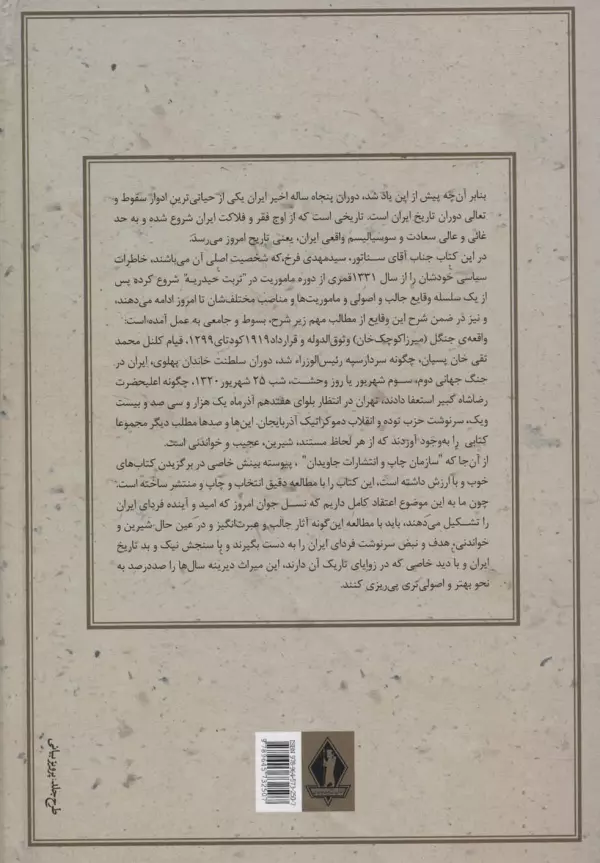 بنابر آن‌چه پیش از این یاد شد، دوران پنجاه ساله اخیر ایران یکی از حیاتی‌ترین ادوار سقوط و
تعالی دوران تاریخ ایران است. تاریخی است که از اوج فقر و فلاکت ایران شروع شده و به حد
غائی و عالی سعادت و سوسیالیسم واقعی ایران، یعنی تاریخ امروز می‌رسد.
در این کتاب جناب آقای سناتور، سیدمهدی فرخ،که شخصیت اصلی آن می‌باشند، خاطرات
سیاسی خودشان را از سال ۱۳۳۱قمری از دوره ماموریت در"تربت حیدریه" شروع کرده پس
از یک سلسله وقایع جالب و اصولی و ماموریت‌ها و مناصب مختلف‌شان تا امروز ادامه می‌دهند،
و نیز در ضمن شرح این وقایع از مطالب مهم زیر شرح، بسوط و جامعی به عمل آمده‌است:
واقعه‌ی جنگل (میرزاکوچک‌خان) وثوق‌الدوله و قرارداد۱۹۱۹کودتای۱۲۹۹، قیام کلنل محمد
تقی خان پسیان، چگونه سردارسپه رئیس‌الوزراء شد، دوران سلطنت خاندان پهلوی، ایران در
جنگ جهانی دوم، سوم شهریور یا روز وحشت، شب ۲۵ شهریور ۱۳۲۰، چگونه اعلیحضرت
رضاشاه کبیر استعفا دادند، تهران در انتظار بلوای هفتدهم آذرماه یک هزار و سی صد و بیست
ویک، سرنوشت حزب توده و انقلاب دموکراتیک آذربایجان. این‌ها و صدها مطلب دیگر مجموعا
کتابی را به‌وجود آوردند که از هر لحاظ مستند، شیرین، عجیب و خواندنی است.
از آن‌جا که "سازمان چاپ و انتشارات جاویدان" ، پیوسته بینش خاصی در برگزیدن کتاب‌های
خوب و با ارزش داشته است، این کتاب را با مطالعه دقیق انتخاب و چاپ و منتشر ساخته است.
چون ما به این موضوع اعتقاد کامل داریم که نسل جوان امروز که امید و آینده فردای ایران
را تشکیل می‌دهند، باید با مطالعه این‌گونه آثار جالب و عبرت‌انگیز و در عین حال شیرین و
خواندنی، هدف و نبض سرنوشت فردای ایران را به دست بگیرند و با سنجش نیک و بد تاریخ
ایران و با دید خاصی که در زوایای تاریک آن دارند، این میراث دیرینه سال‌ها را صددرصد به
نحو بهتر و اصولی‌تری پی‌ریزی کنند.
طرح جلد: پرویز بیانی
ISBN: 978-964-5732-50-7
9789645732507